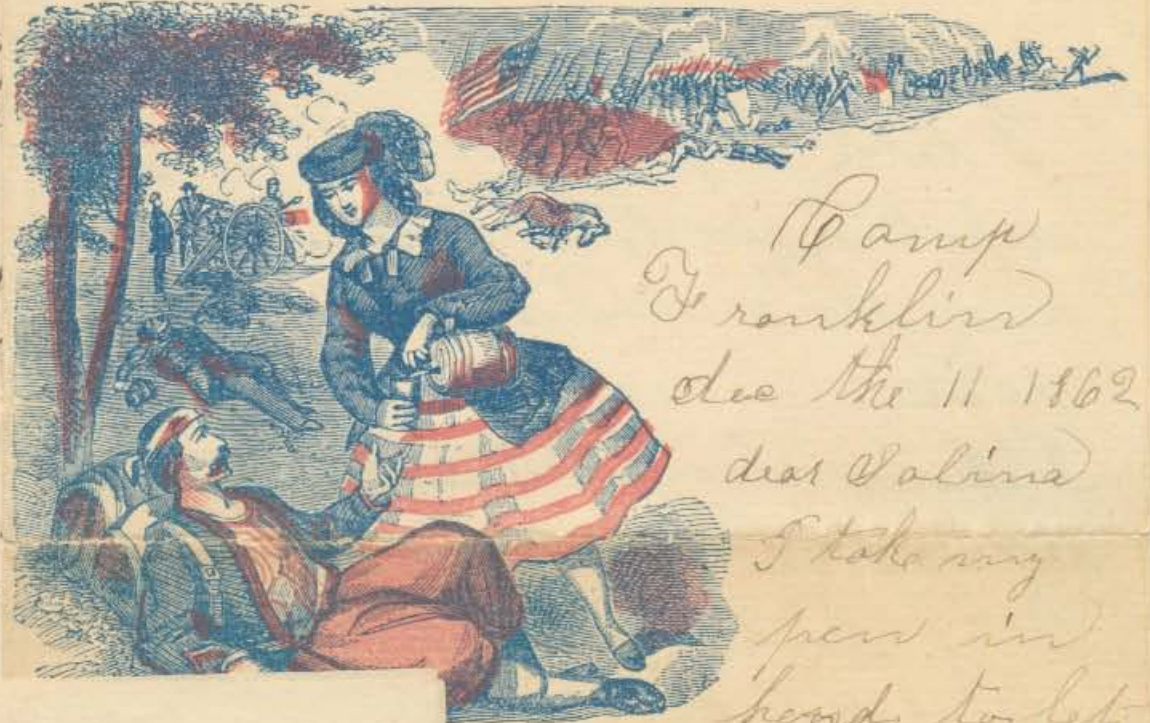 Camp
Franklin
dec the 11 1862
dear Salina
I take my
pen in
hand to let